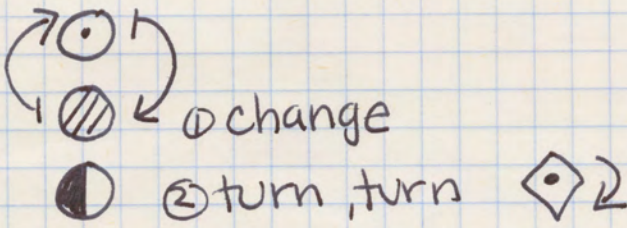 ① change
② turn, turn